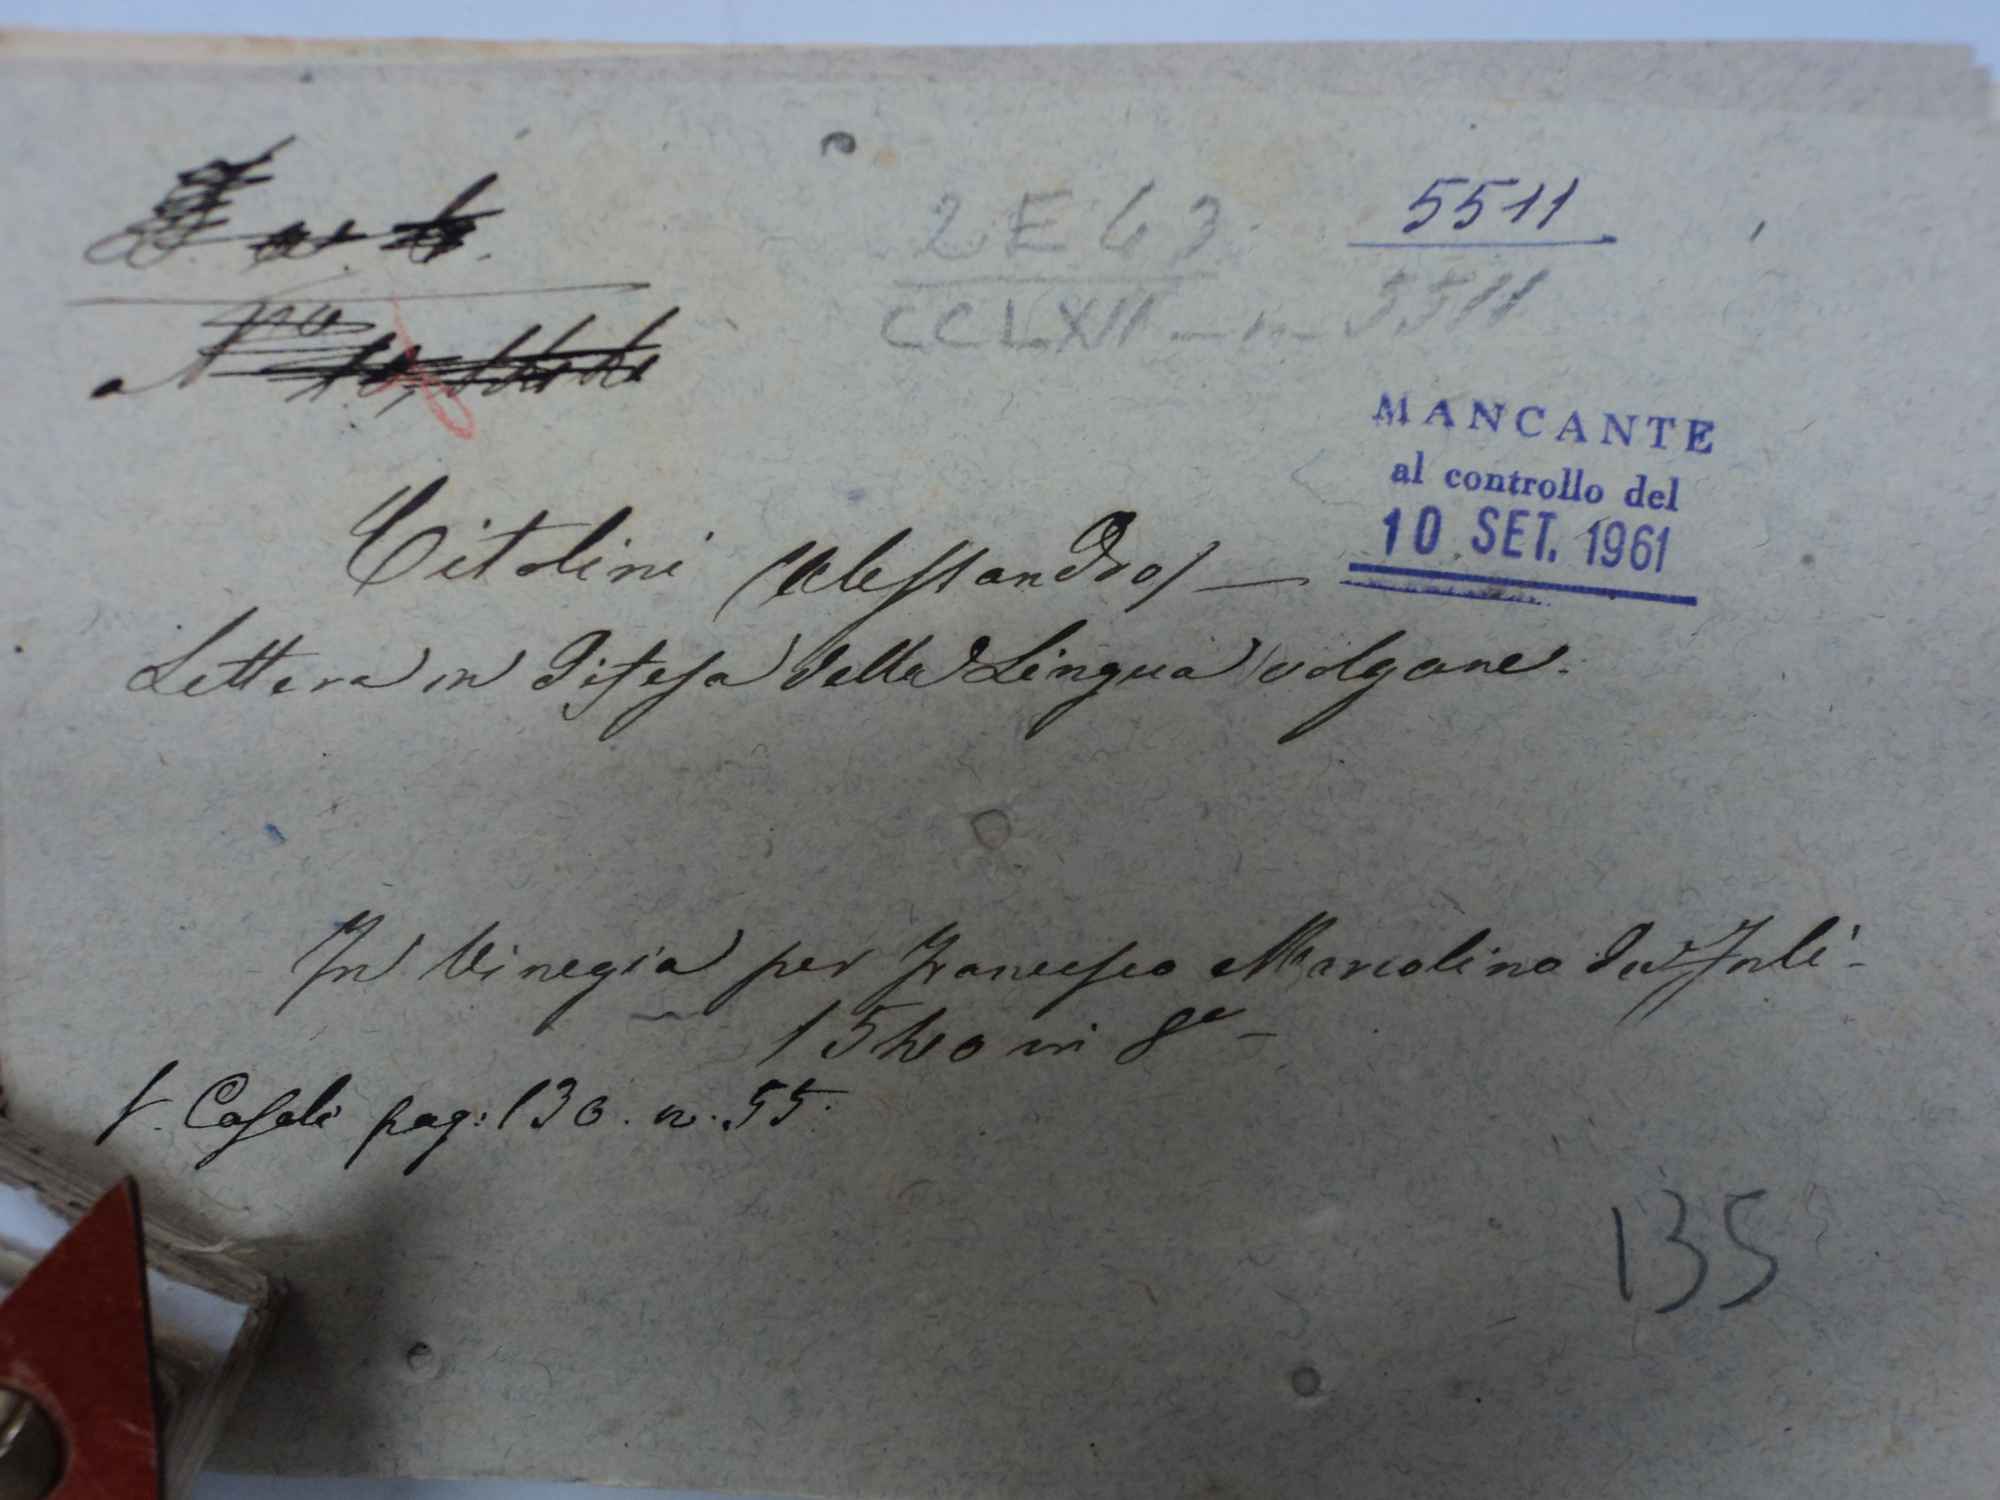 2 E 63
5511
CCLXII — n — 5511
MANCANTE
al controllo del
10 SET. 1961
Citolini (Alessandro) —
Lettera in difesa della Lingua volgare.
In Vinegia per Francesco Marcolino da Forlì -
1540 in 8°
V. Casali pag: 130. n. 55.
135